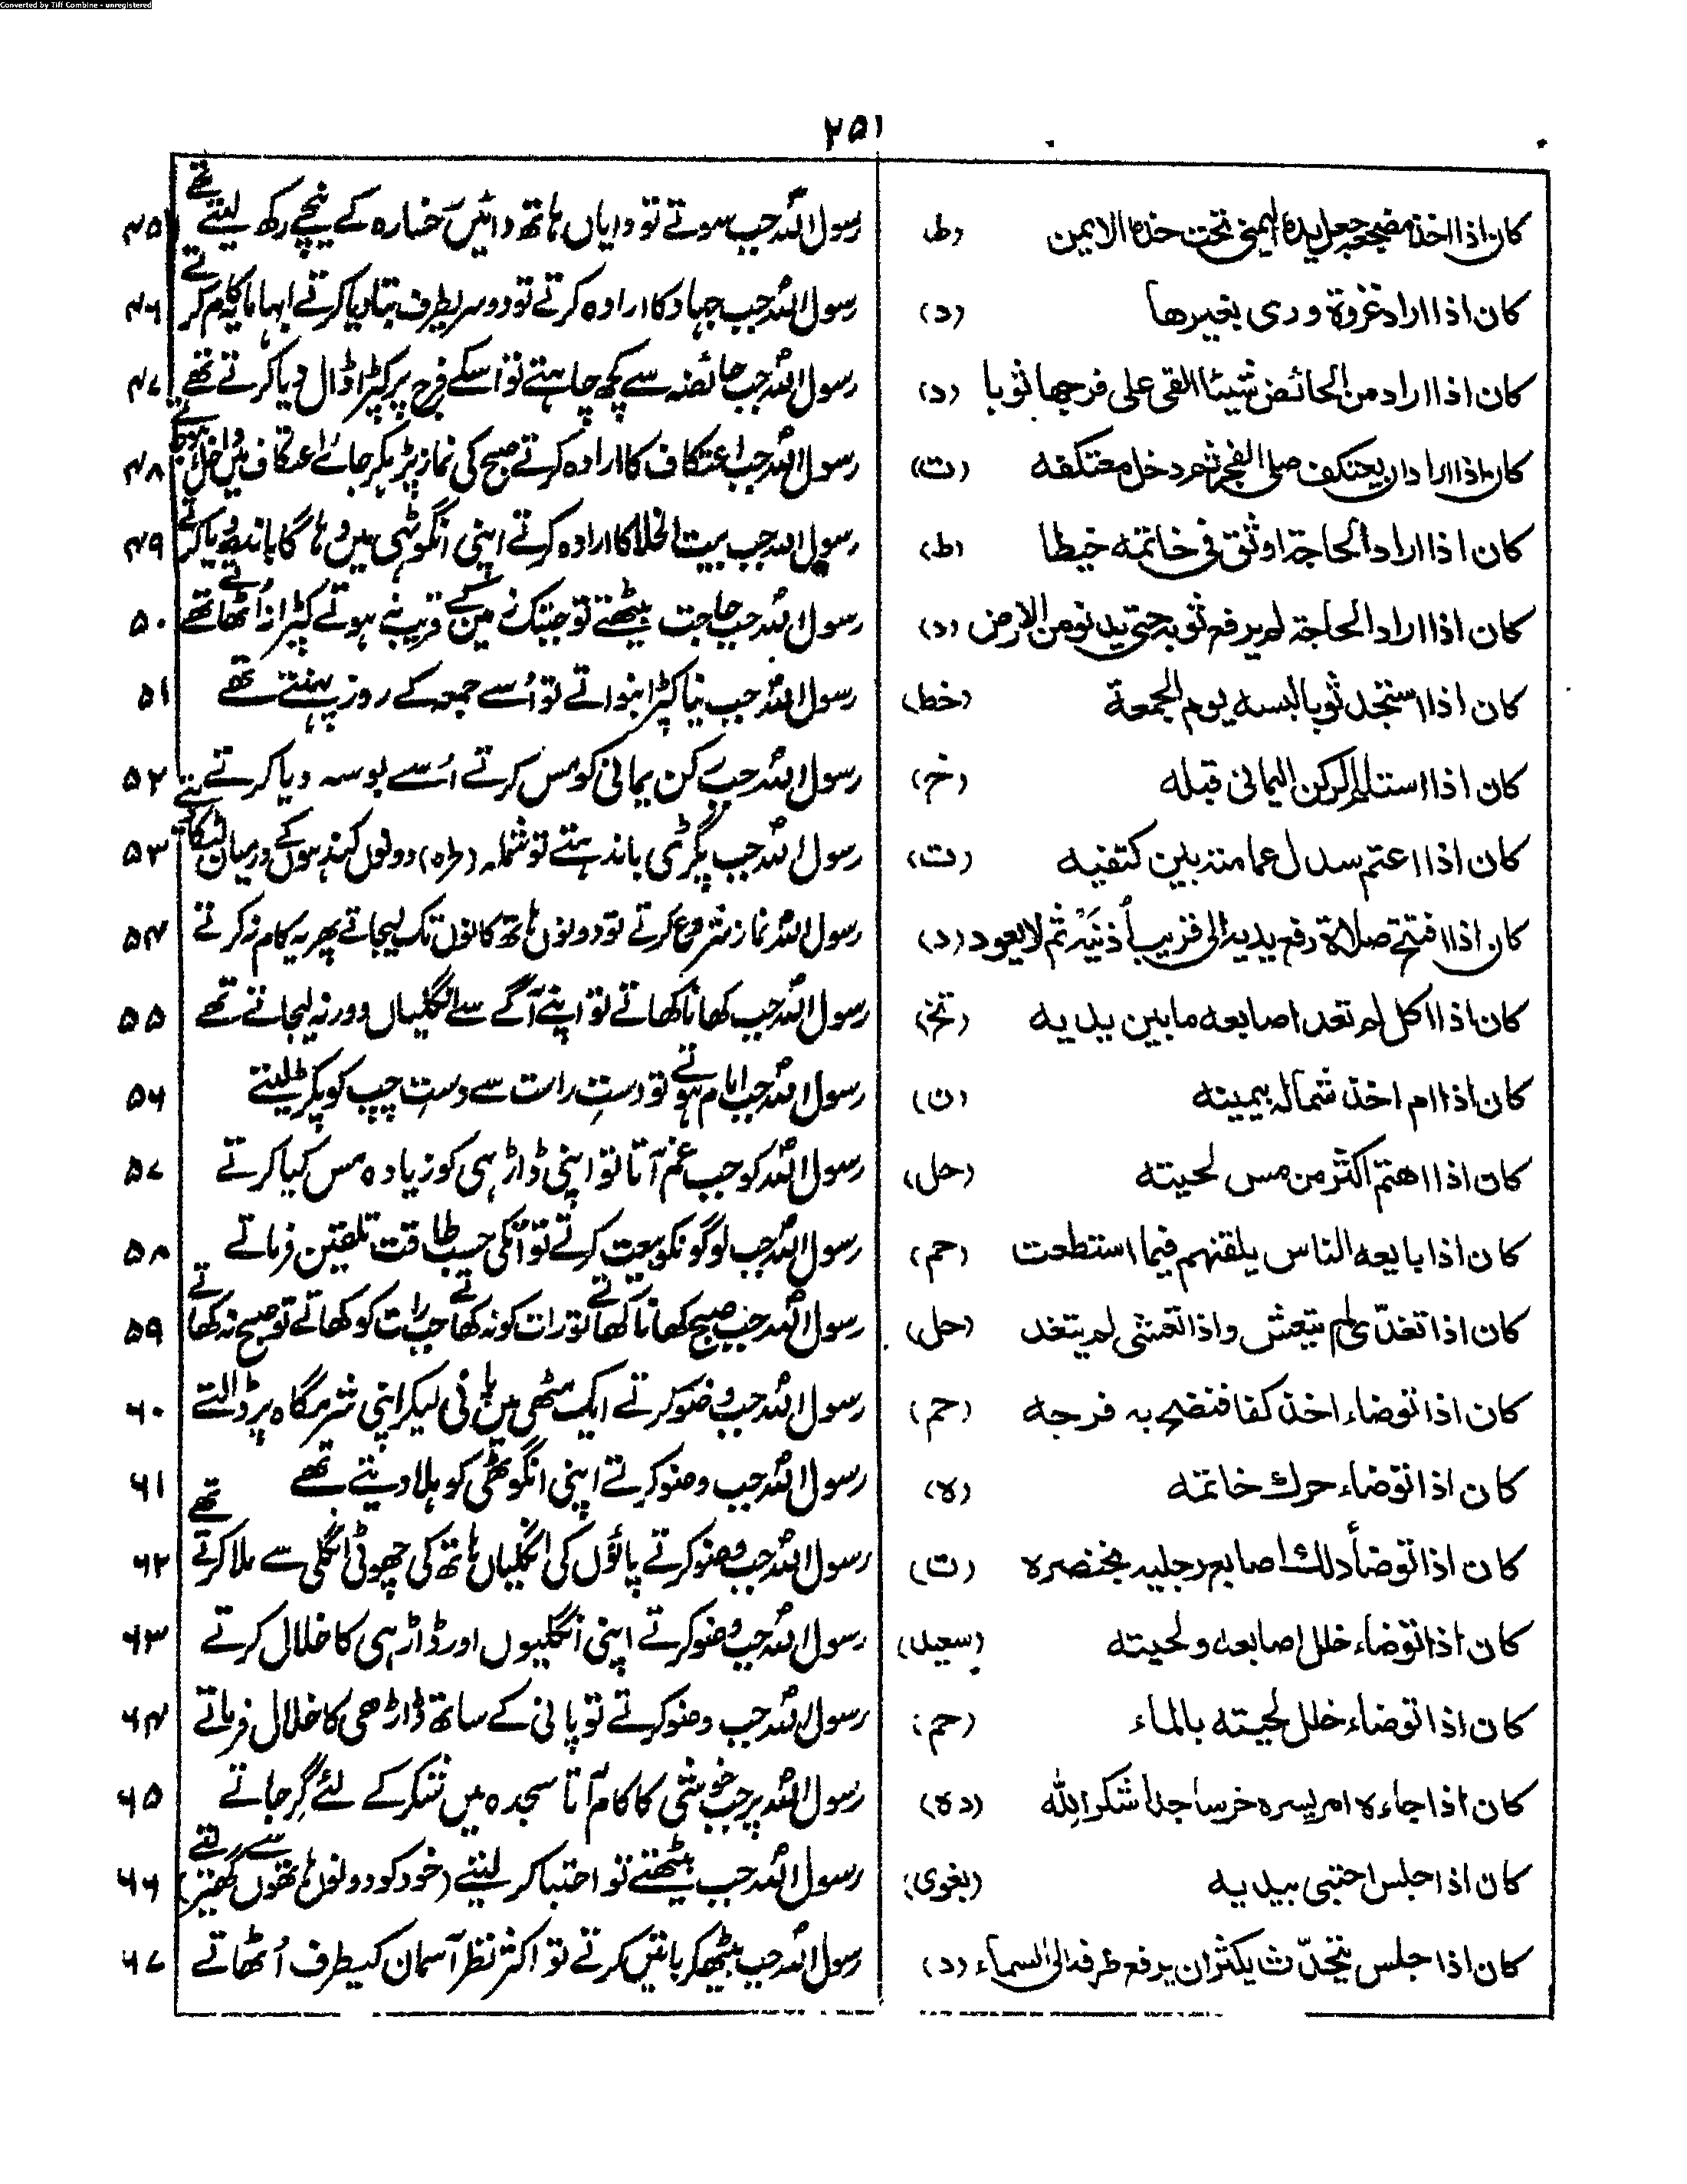 Converted by Tiff Combine - unregistered
۲۵۱
کان اذا اخذ مضجعہ جعل یدہ الیمنی تحت خدہ الایمن (ط) رسول اللہ جب سوتے تو دایاں ہاتھ دائیں رخسارہ کے نیچے رکھ لیتے تھے ۴۵
کان اذا اراد غزوۃ وری بغیرھا (د) رسول اللہ جب جہاد کا ارادہ کرتے تو دوسریطرف بتادیا کرتے ۴۶
کان اذا اراد من الحائض شیئا القی علی فرجھا ثوبا (د) رسول اللہ جب حائضہ سے کچھ چاہتے تو اسکے فرج پر کپڑا ڈال دیا کرتے تھے ۴۷
کان اذا اراد ان یعتکف صلی الفجر ثم دخل معتکفہ (ت) رسول اللہ جب اعتکاف کا ارادہ کرتے صبح کی نماز پڑہکر جائے اعتکاف میں داخل ہوجاتے ۴۸
کان اذا اراد الحاجۃ اوثق فی خاتمہ خیطا (ط) رسول اللہ جب بیت الخلا کا ارادہ کرتے اپنی انگوٹھی میں دہاگا باندھ دیا کرتے ۴۹
کان اذا اراد الحاجۃ لم یرفع ثوبہ حتی یدنو من الارض (د) رسول اللہ جب حاجت بیٹھتے تو جبتک زمین کے قریب نہ ہوتے کپڑا نہ اُٹھاتے تھے ۵۰
کان اذا استجد ثوبا لبسہ یوم الجمعۃ (خط) رسول اللہ جب نیا کپڑا بنواتے تو اُسے جمعہ کے روز پہنتے تھے ۵۱
کان اذا استلم الرکن الیمانی قبلہ (خ) رسول اللہ جب رکن یمانی کو مس کرتے اُسے بوسہ دیا کرتے تھے ۵۲
کان اذا اعتم سدل عمامتہ بین کتفیہ (ت) رسول اللہ جب پگڑی باندہتے تو شملہ (طرہ) دونوں کندہوں کے درمیان لٹکاتے ۵۳
کان اذا افتتح صلاۃ رفع یدیہ الی قریب أذنَیْہ ثم لا یعود (د) رسول اللہ نماز شروع کرتے تو دونوں ہاتھ کانوں تک لیجاتے پھر یہ کام نہ کرتے ۵۴
کان اذا اکل لم تعد اصابعہ ما بین یدیہ (تخ) رسول اللہ جب کھانا کھاتے تو اپنے آگے سے انگلیاں دور نہ لیجاتے تھے ۵۵
کان اذا ام اخذ شمالہ بیمینہ (ن) رسول اللہ جب امام ہوتے تو دستِ راست سے دستِ چپ کو پکڑ لیتے ۵۶
کان اذا اھتم اکثر من مس لحیتہ (حل) رسول اللہ کو جب غم آتا تو اپنی ڈاڑہی کو زیادہ مس کیا کرتے ۵۷
کان اذا بایعہ الناس یلقنھم فیما استطعت (حم) رسول اللہ جب لوگونکو بیعت کرتے تو اُنکی حسب طاقت تلقین فرماتے ۵۸
کان اذا تغدّی لم یتعش واذا تعشی لم یتغد (حل) رسول اللہ جب صبح کھانا کھاتے تو رات کو نہ کھاتے جب رات کو کھاتے تو صبح نہ کھاتے ۵۹
کان اذا توضاء اخذ کفا فنضح بہ فرجہ (حم) رسول اللہ جب وضو کرتے ایک مٹھی میں پانی لیکر اپنی شرمگاہ پر ڈالتے ۶۰
کان اذا توضاء حرک خاتمہ (ہ) رسول اللہ جب وضو کرتے اپنی انگوٹھی کو ہلا دیتے تھے ۶۱
کان اذا توضأ دلک اصابع رجلیہ بخنصرہ (ت) رسول اللہ جب وضو کرتے پاؤں کی انگلیاں ہاتھ کی چھوٹی انگلی سے ملا کرتے تھے ۶۲
کان اذا توضاء خلل اصابعہ ولحیتہ (سعید) رسول اللہ جب وضو کرتے اپنی انگلیوں اور ڈاڑہی کا خلال کرتے ۶۳
کان اذا توضاء خلل لحیتہ بالماء (حم) رسول اللہ جب وضو کرتے تو پانی کے ساتھ ڈاڑھی کا خلال فرماتے ۶۴
کان اذا جاءہ امر یسرہ خر ساجدا شکرا للہ (دہ) رسول اللہ پر جب خوشی کا کام آتا سجدہ میں شکر کے لئے گر جاتے ۶۵
کان اذا جلس احتبی بیدیہ (بغوی) رسول اللہ جب بیٹھتے تو احتبا کر لیتے (خود کو دونوں ہاتھوں سے گھیر لیتے) ۶۶
کان اذا جلس یتحدّث یکثر ان یرفع طرفہ الی السماء (د) رسول اللہ جب بیٹھکر باتیں کرتے تو اکثر نظر آسمان کیطرف اُٹھاتے ۶۷